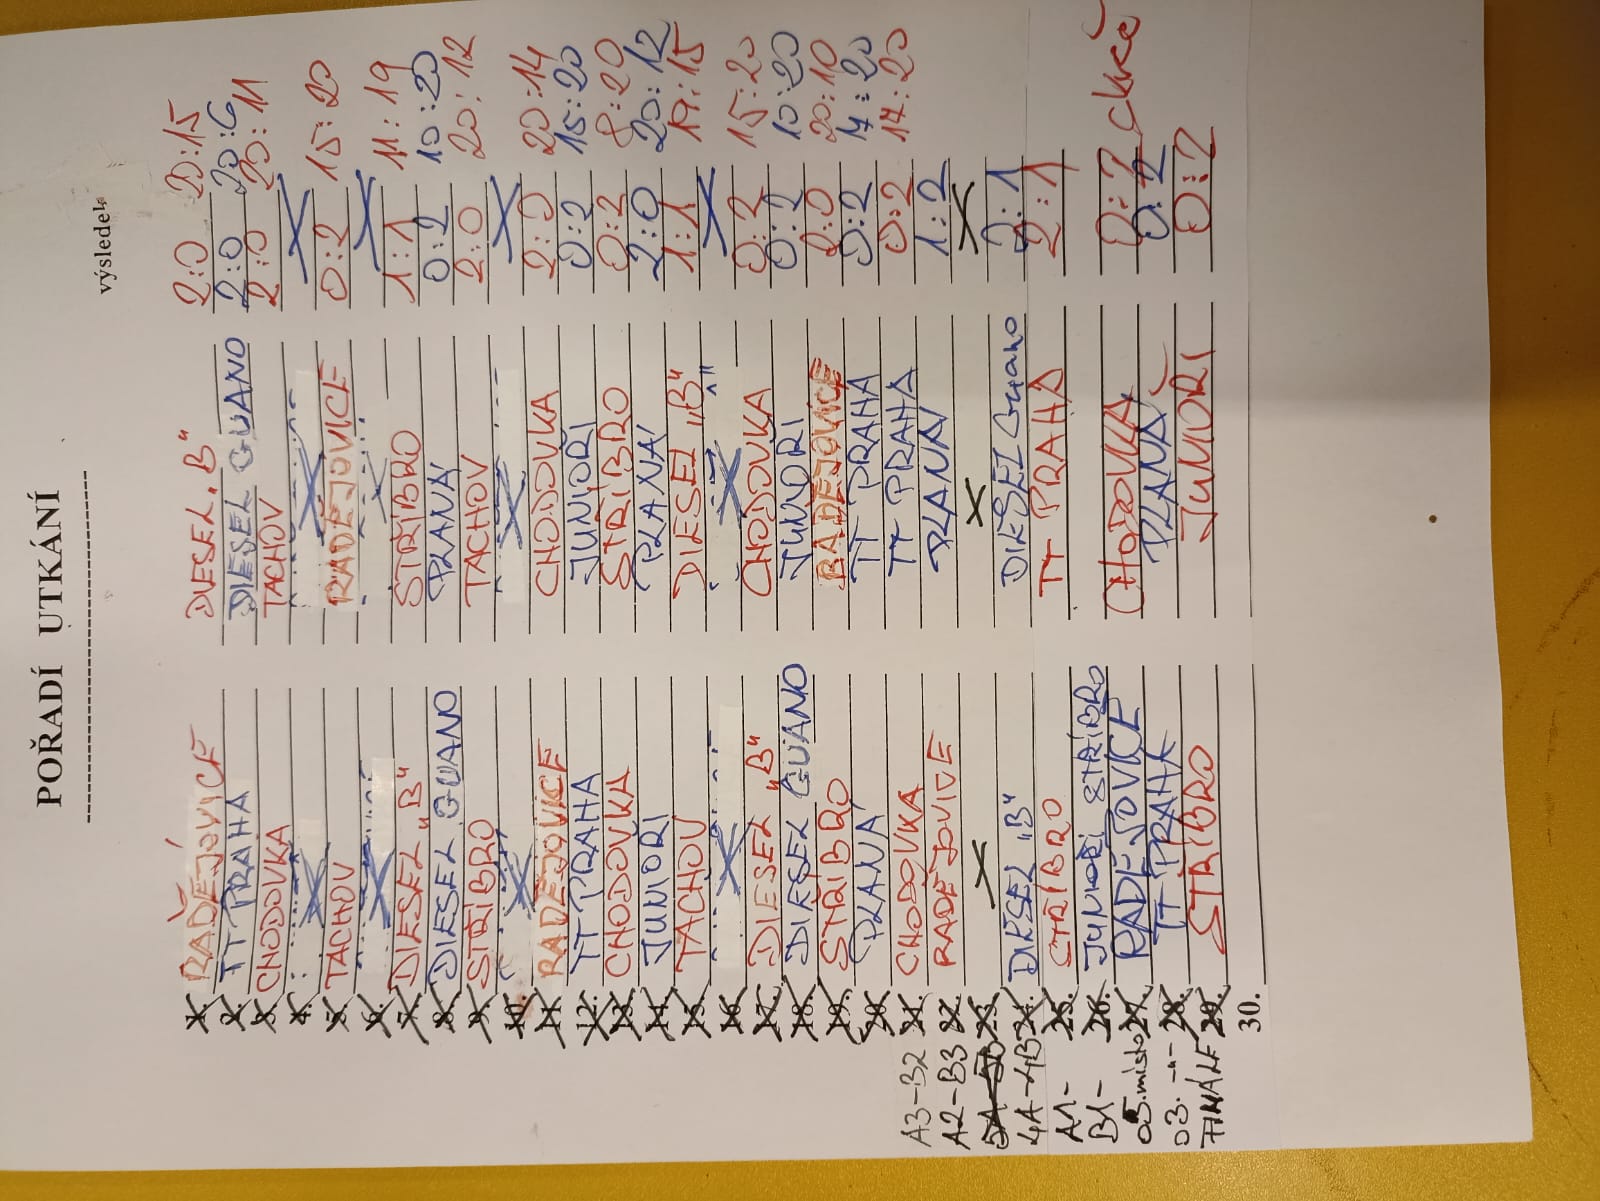 POŘADÍ UTKÁNÍ
výsledek
1. RADĚJOVICE DIESEL „B" 2:0 20:15
2. TT PRAHA DIESEL GUANO 2:0 20:6
3. CHODOVKA TACHOV 2:0 20:11
4.
5. TACHOV RADEJOVICE 0:2 15:20
6.
7. DIESEL „B" STŘÍBRO 1:1 11:19
8. DIESEL GUANO PLANÁ 0:2 10:20
9. STŘÍBRO TACHOV 2:0 20:12
10.
11. RADEJOVICE CHODOVKA 2:0 20:14
12. TT PRAHA JUNIOŘI 0:2 15:20
13. CHODOVKA STŘÍBRO 0:2 8:20
14. JUNIOŘI PLANÁ 2:0 20:12
15. TACHOV DIESEL „B" 1:1 19:15
16.
17. DIESEL „B" CHODOVKA 0:2 15:20
18. DIESEL GUANO JUNIOŘI 0:2 10:20
19. STŘÍBRO RADEJOVICE 2:0 20:10
20. PLANÁ TT PRAHA 0:2 17:20
A3-B2 21. CHODOVKA TT PRAHA 0:2 17:20
A2-B3 22. RADEJOVICE PLANÁ 1:2
5A-5B 23.
4A-4B 24. DIESEL „B" DIESEL Guano 2:1
A1- 25. STŘÍBRO TT PRAHA 2:1
B1- 26. JUNIOŘI STŘÍBRO
O5. místo 27. RADEJOVICE CHODOVKA 0:2
O3. -"- 28. TT PRAHA PLANÁ 0:2
FINÁLE 29. STŘÍBRO JUNIOŘI 0:2
30.